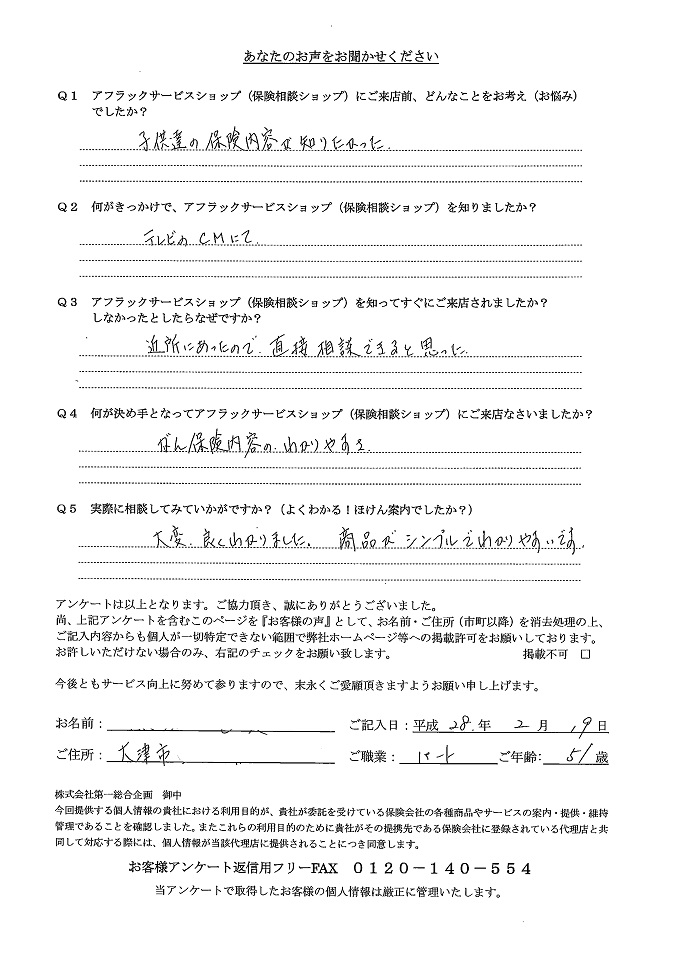 あなたのお声をお聞かせください
Q1 アフラックサービスショップ（保険相談ショップ）にご来店前、どんなことをお考え（お悩み）
でしたか？
子供達の保険内容が知りたかった.
Q2 何がきっかけで、アフラックサービスショップ（保険相談ショップ）を知りましたか？
テレビのCMにて.
Q3 アフラックサービスショップ（保険相談ショップ）を知ってすぐにご来店されましたか？
しなかったとしたらなぜですか？
近所にあったので.直接相談できると思った.
Q4 何が決め手となってアフラックサービスショップ（保険相談ショップ）にご来店なさいましたか？
がん保険内容の.わかりやすさ.
Q5 実際に相談してみていかがですか？（よくわかる！ほけん案内でしたか？）
大変.良くわかりました. 商品がシンプルでわかりやすいです.
アンケートは以上となります。ご協力頂き、誠にありがとうございました。
尚、上記アンケートを含むこのページを『お客様の声』として、お名前・ご住所（市町以降）を消去処理の上、
ご記入内容からも個人が一切特定できない範囲で弊社ホームページ等への掲載許可をお願いしております。
お許しいただけない場合のみ、右記のチェックをお願い致します。 掲載不可 □
今後ともサービス向上に努めて参りますので、末永くご愛顧頂きますようお願い申し上げます。
お名前： ご記入日：平成 28.年 2 月 19 日
ご住所： 大津市 ご職業： パート ご年齢： 51 歳
株式会社第一総合企画 御中
今回提供する個人情報の貴社における利用目的が、貴社が委託を受けている保険会社の各種商品やサービスの案内・提供・維持
管理であることを確認しました。またこれらの利用目的のために貴社がその提携先である保険会社に登録されている代理店と共
同して対応する際には、個人情報が当該代理店に提供されることにつき同意します。
お客様アンケート返信用フリーFAX 0120－140－554
当アンケートで取得したお客様の個人情報は厳正に管理いたします。